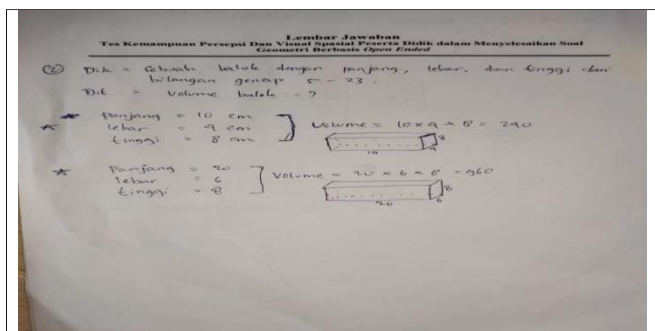 Lembar Jawaban
Tes Kemampuan Persepsi Dan Visual Spasial Peserta Didik dalam Menyelesaikan Soal
Geometri Berbasis Open Ended
2 Dik = Sebuah balok dengan panjang, lebar, dan tinggi dari
bilangan genap 5 - 23.
Dit = Volume balok = ?
* Panjang = 10 cm
* lebar = 4 cm
tinggi = 8 cm
Volume = 10 x 4 x 8 = 240
8
4
10
* Panjang = 20
lebar = 6
tinggi = 8
Volume = 20 x 6 x 8 = 960
8
6
20